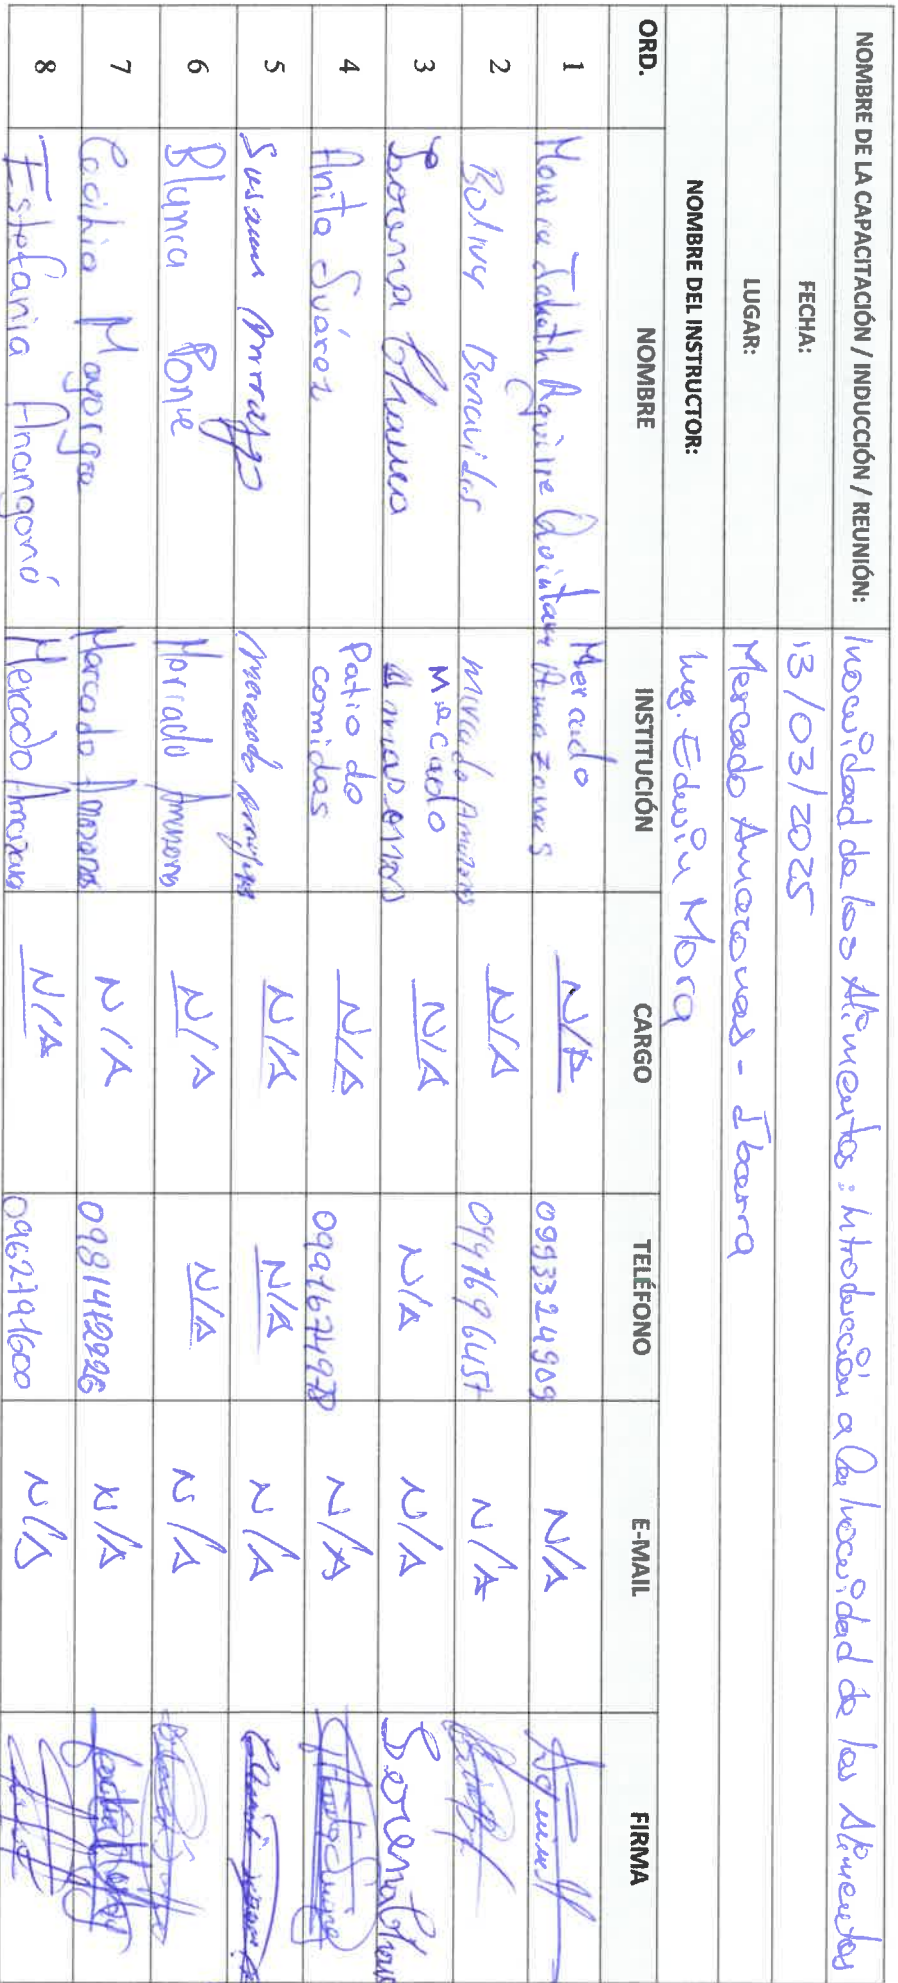 NOMBRE DE LA CAPACITACIÓN / INDUCCIÓN / REUNIÓN: Inocuidad de los Alimentos: Introducción a la Inocuidad de los Alimentos
FECHA: 13/03/2025
LUGAR: Mercado Amazonas - Ibarra
NOMBRE DEL INSTRUCTOR: Ing. Edwin Mora
ORD. NOMBRE INSTITUCIÓN CARGO TELÉFONO E-MAIL FIRMA
1 Aguirre Quintana Mercado Amazonas N/A 0993324909 N/A
2 Bolivar Benavides Mercado Amazonas N/A N/A
3 Lorena Mercado Amazonas N/A N/A N/A Lorena
4 Anita Suárez Patio de comidas N/A N/A
5 Susana Mercado N/A N/A N/A
6 Blanca Ponce Mercado Amazonas N/A N/A N/A
7 Cecilia Mayorga Mercado Amazonas N/A N/A
8 Estefania Anangonó Mercado Amazonas N/A N/A